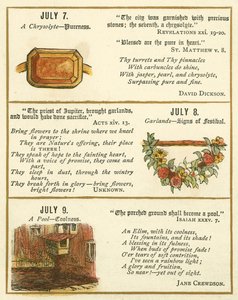 JULY 7.
A Chrysolyte—Pureness.
"The city was garnished with precious
stones; the seventh, a chrysolyte."
REVELATIONS xxi. 19-20.
"Blessed are the pure in heart."
ST. MATTHEW v. 8.
Thy turrets and Thy pinnacles
With carbuncles do shine,
With jasper, pearl, and chrysolyte,
Surpassing pure and fine.
DAVID DICKSON.
"The priest of Jupiter, brought garlands,
and would have done sacrifice."
ACTS xiv. 13.
Bring flowers to the shrine where we kneel
in prayer;
They are Nature's offering, their place
is THERE!
They speak of hope to the fainting heart,
With a voice of promise, they come and
part.
They sleep in dust, through the wintry
hours,
They break forth in glory—bring flowers,
bright flowers! UNKNOWN.
JULY 8.
Garlands—Signs of Festival.
JULY 9.
A Pool—Coolness.
"The parched ground shall become a pool."
ISAIAH xxxv. 7.
An Elim, with its coolness,
Its fountains, and its shade!
A blessing in its fulness,
When buds of promise fade!
O'er tears of soft contrition,
I've seen a rainbow light;
A glory and fruition,
So near!—yet out of sight.
JANE CREWDSON.